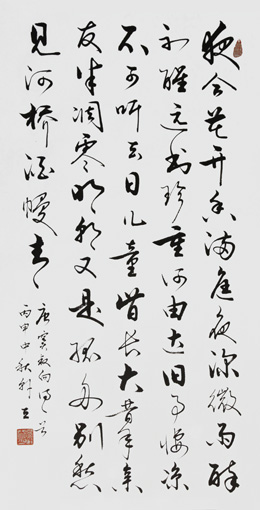 夜合花开香满庭夜深微雨醉
初醒远书珍重何由达旧事凄凉
不可听去日儿童皆长大昔年亲
友半凋零明朝又是孤舟别愁
见河桥酒幔青
唐窦叔向诗
丙申中秋